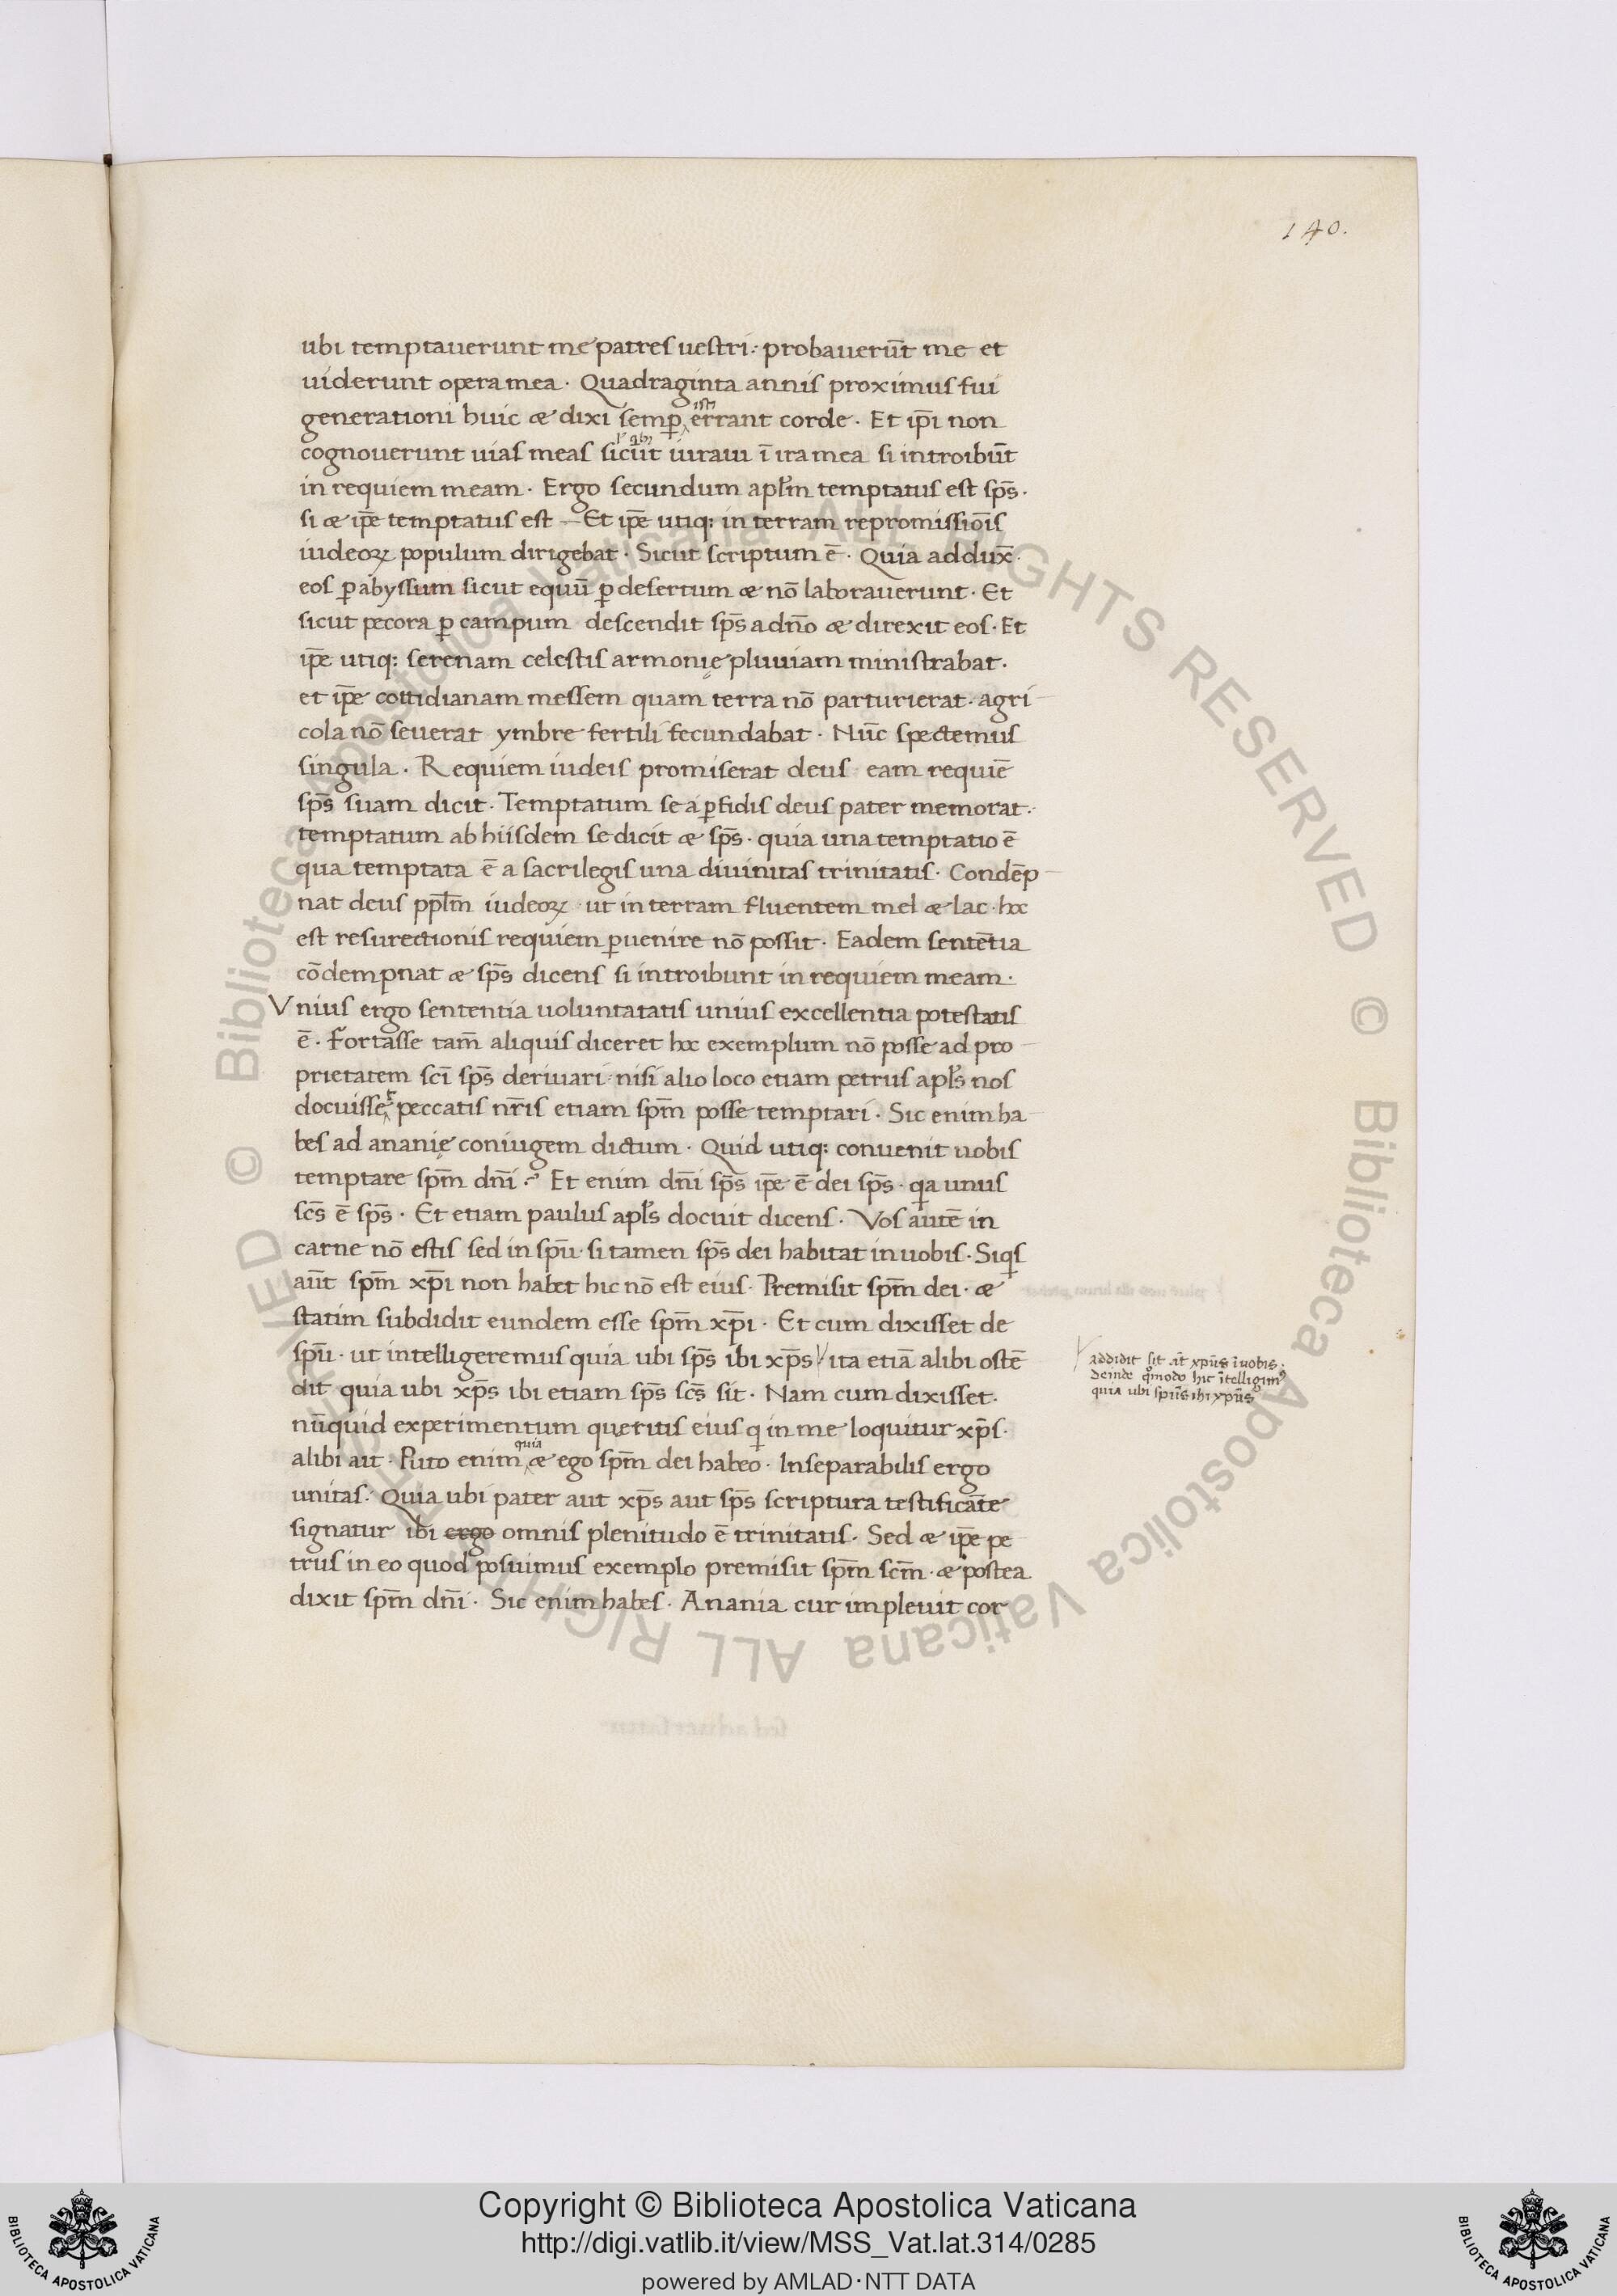 140.
ubi temptauerunt me patres uestri· probauerūt me et
uiderunt opera mea · Quadraginta annis proximus fui
generationi huic æ dixi semꝑ isti errant corde · Et ip̄i non
cognouerunt uias meas sicut iuraui ī ira mea si introibūt
in requiem meam · Ergo secundum apl̄m temptatus est sp̄s·
si æ ip̄e temptatus est — Et ip̄e utiq: in terram repromissiōis
iudeoꝝ populum dirigebat · Sicut scriptum ē · Quia addux̄·
eos ꝑ abyssum sicut equū ꝑ desertum æ nō laborauerunt · Et
sicut pecora ꝑ campum descendit sp̄s a dn̄o æ direxit eos · Et
ip̄e utiq: serenam celestis armonię pluuiam ministrabat·
et ip̄e cottidianam messem quam terra nō parturierat · agri
cola nō seuerat ymbre fertili fecundabat · Nūc spectemus
singula · Requiem iudeis promiserat deus eam requiē
sp̄s suam dicit · Temptatum se a ꝑfidis deus pater memorat·
temptatum ab hiisdem se dicit æ sp̄s · quia una temptatio ē
qua temptata ē a sacrilegis una diuinitas trinitatis · Condēp
nat deus ppl̄m iudeoꝝ · ut in terram fluentem mel æ lac · hoc
est resurectionis requiem ꝑuenire nō possit · Eadem sentētia
cōdempnat æ sp̄s dicens si introibunt in requiem meam·
Vnius ergo sententia uoluntatatis unius excellentia potestatis
ē · Fortasse tam̄ aliquis diceret hoc exemplum nō posse ad pro
prietatem sci̅ sp̄s deriuari · nisi alio loco etiam petrus apl̄s nos
docuisset peccatis nr̄is etiam sp̄m posse temptari · Sic enim ha
bes ad ananię coniugem dictum · Quid utiq: conuenit uobis
temptare sp̄m dn̄i ? Et enim dn̄i sp̄s ip̄e ē dei sp̄s · qa unus
sc̄s ē sp̄s · Et etiam paulus apl̄s docuit dicens · Vos autē in
carne nō estis sed in sp̄u · si tamen sp̄s dei habitat in uobis · Siqs
aūt sp̄m xp̄i non habet hic nō est eius · Premisit sp̄m dei · æ
statim subdidit eundem esse sp̄m xp̄i · Et cum dixisset de
sp̄u · ut intelligeremus quia ubi sp̄s ibi xp̄s ita etiā alibi ostē
addidit sit at̄ xpūs ī uobis·
deinde qmodo hic ītelligimꝰ
quia ubi spūs ibi xpūs
dit quia ubi xp̄s ibi etiam sp̄s sc̄s sit · Nam cum dixisset·
nūquid experimentum queritis eius q in me loquitur xp̄s·
alibi ait · Puto enim quia æ ego sp̄m dei habeo · Inseparabilis ergo
unitas · Quia ubi pater aut xp̄s aut sp̄s scriptura testificāte
signatur ibi ergo omnis plenitudo ē trinitatis · Sed æ ip̄e pe
trus in eo quod posuimus exemplo premisit sp̄m sc̄m · æ postea
dixit sp̄m dn̄i · Sic enim habes · Anania cur impleuit cor
© Biblioteca Apostolica Vaticana ALL RIGHTS RESERVED © Biblioteca Apostolica Vaticana ALL RIGHTS RESERVED
Copyright © Biblioteca Apostolica Vaticana
http://digi.vatlib.it/view/MSS_Vat.lat.314/0285
powered by AMLAD·NTT DATA
BIBLIOTECA APOSTOLICA VATICANA
BIBLIOTECA APOSTOLICA VATICANA